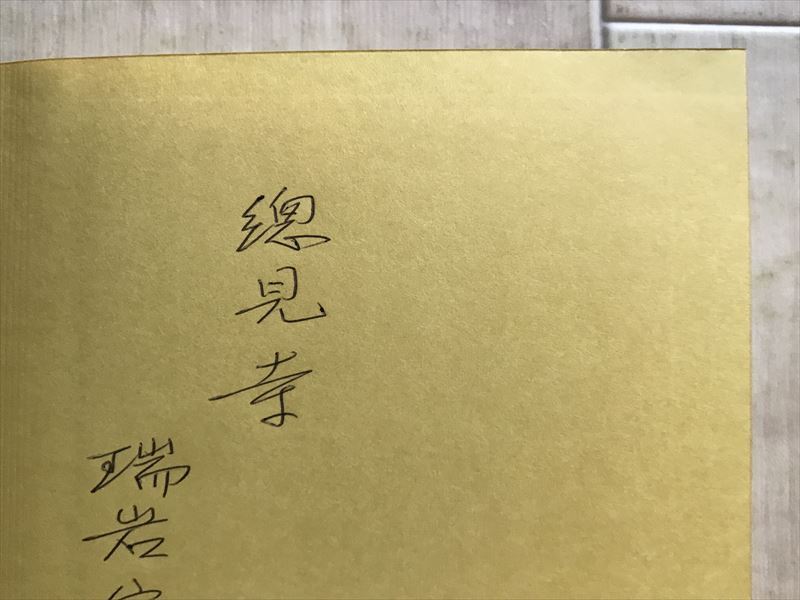 總見寺
瑞岩